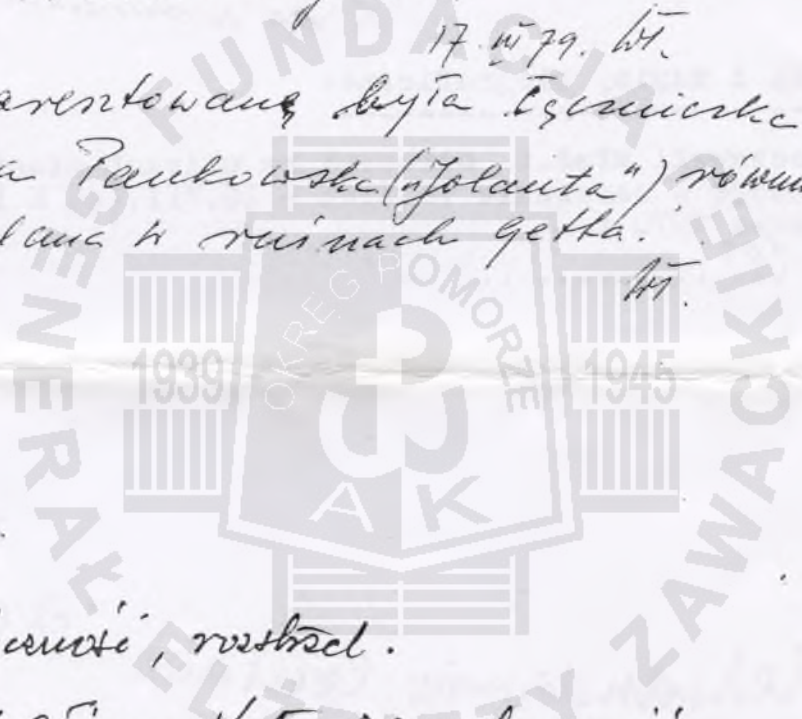 17. III 79. Wł.
aresztowaną była łączniczka
a Pankowska („Jolanta”) równi
lana w ruinach getta.
Wł.
FUNDACJA
GENERAŁ ELŻBIETY ZAWACKIE
OKRĘG POMORZE
1939 1945
AK
czność, rozstrzel.